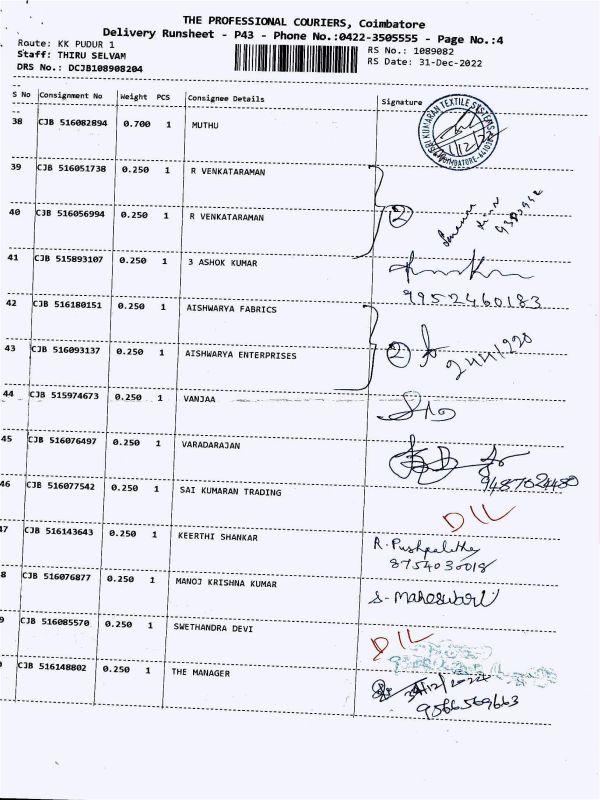 THE PROFESSIONAL COURIERS, Coimbatore
Delivery Runsheet - P43 - Phone No.:0422-3505555 - Page No.:4
Route: KK PUDUR 1 RS No.: 1089082
Staff: THIRU SELVAM RS Date: 31-Dec-2022
DRS No.: DCJB108908204
S No Consignment No Weight PCS Consignee Details Signature
38 CJB 516082894 0.700 1 MUTHU
SRI KUMARAN TEXTILE SYSTEMS
39 CJB 516051738 0.250 1 R VENKATARAMAN
40 CJB 516056994 0.250 1 R VENKATARAMAN 2
41 CJB 515893107 0.250 1 3 ASHOK KUMAR
9952460183
42 CJB 516180151 0.250 1 AISHWARYA FABRICS
43 CJB 516093137 0.250 1 AISHWARYA ENTERPRISES 2 2441220
44 CJB 515974673 0.250 1 VANJAA
45 CJB 516076497 0.250 1 VARADARAJAN
9487024480
46 CJB 516077542 0.250 1 SAI KUMARAN TRADING
DIL
47 CJB 516143643 0.250 1 KEERTHI SHANKAR R. Pushpalatha
8754030018
8 CJB 516076877 0.250 1 MANOJ KRISHNA KUMAR S. Maheswari
9 CJB 516085570 0.250 1 SWETHANDRA DEVI
DIL
CJB 516148802 0.250 1 THE MANAGER 31/12/2022
9566569663